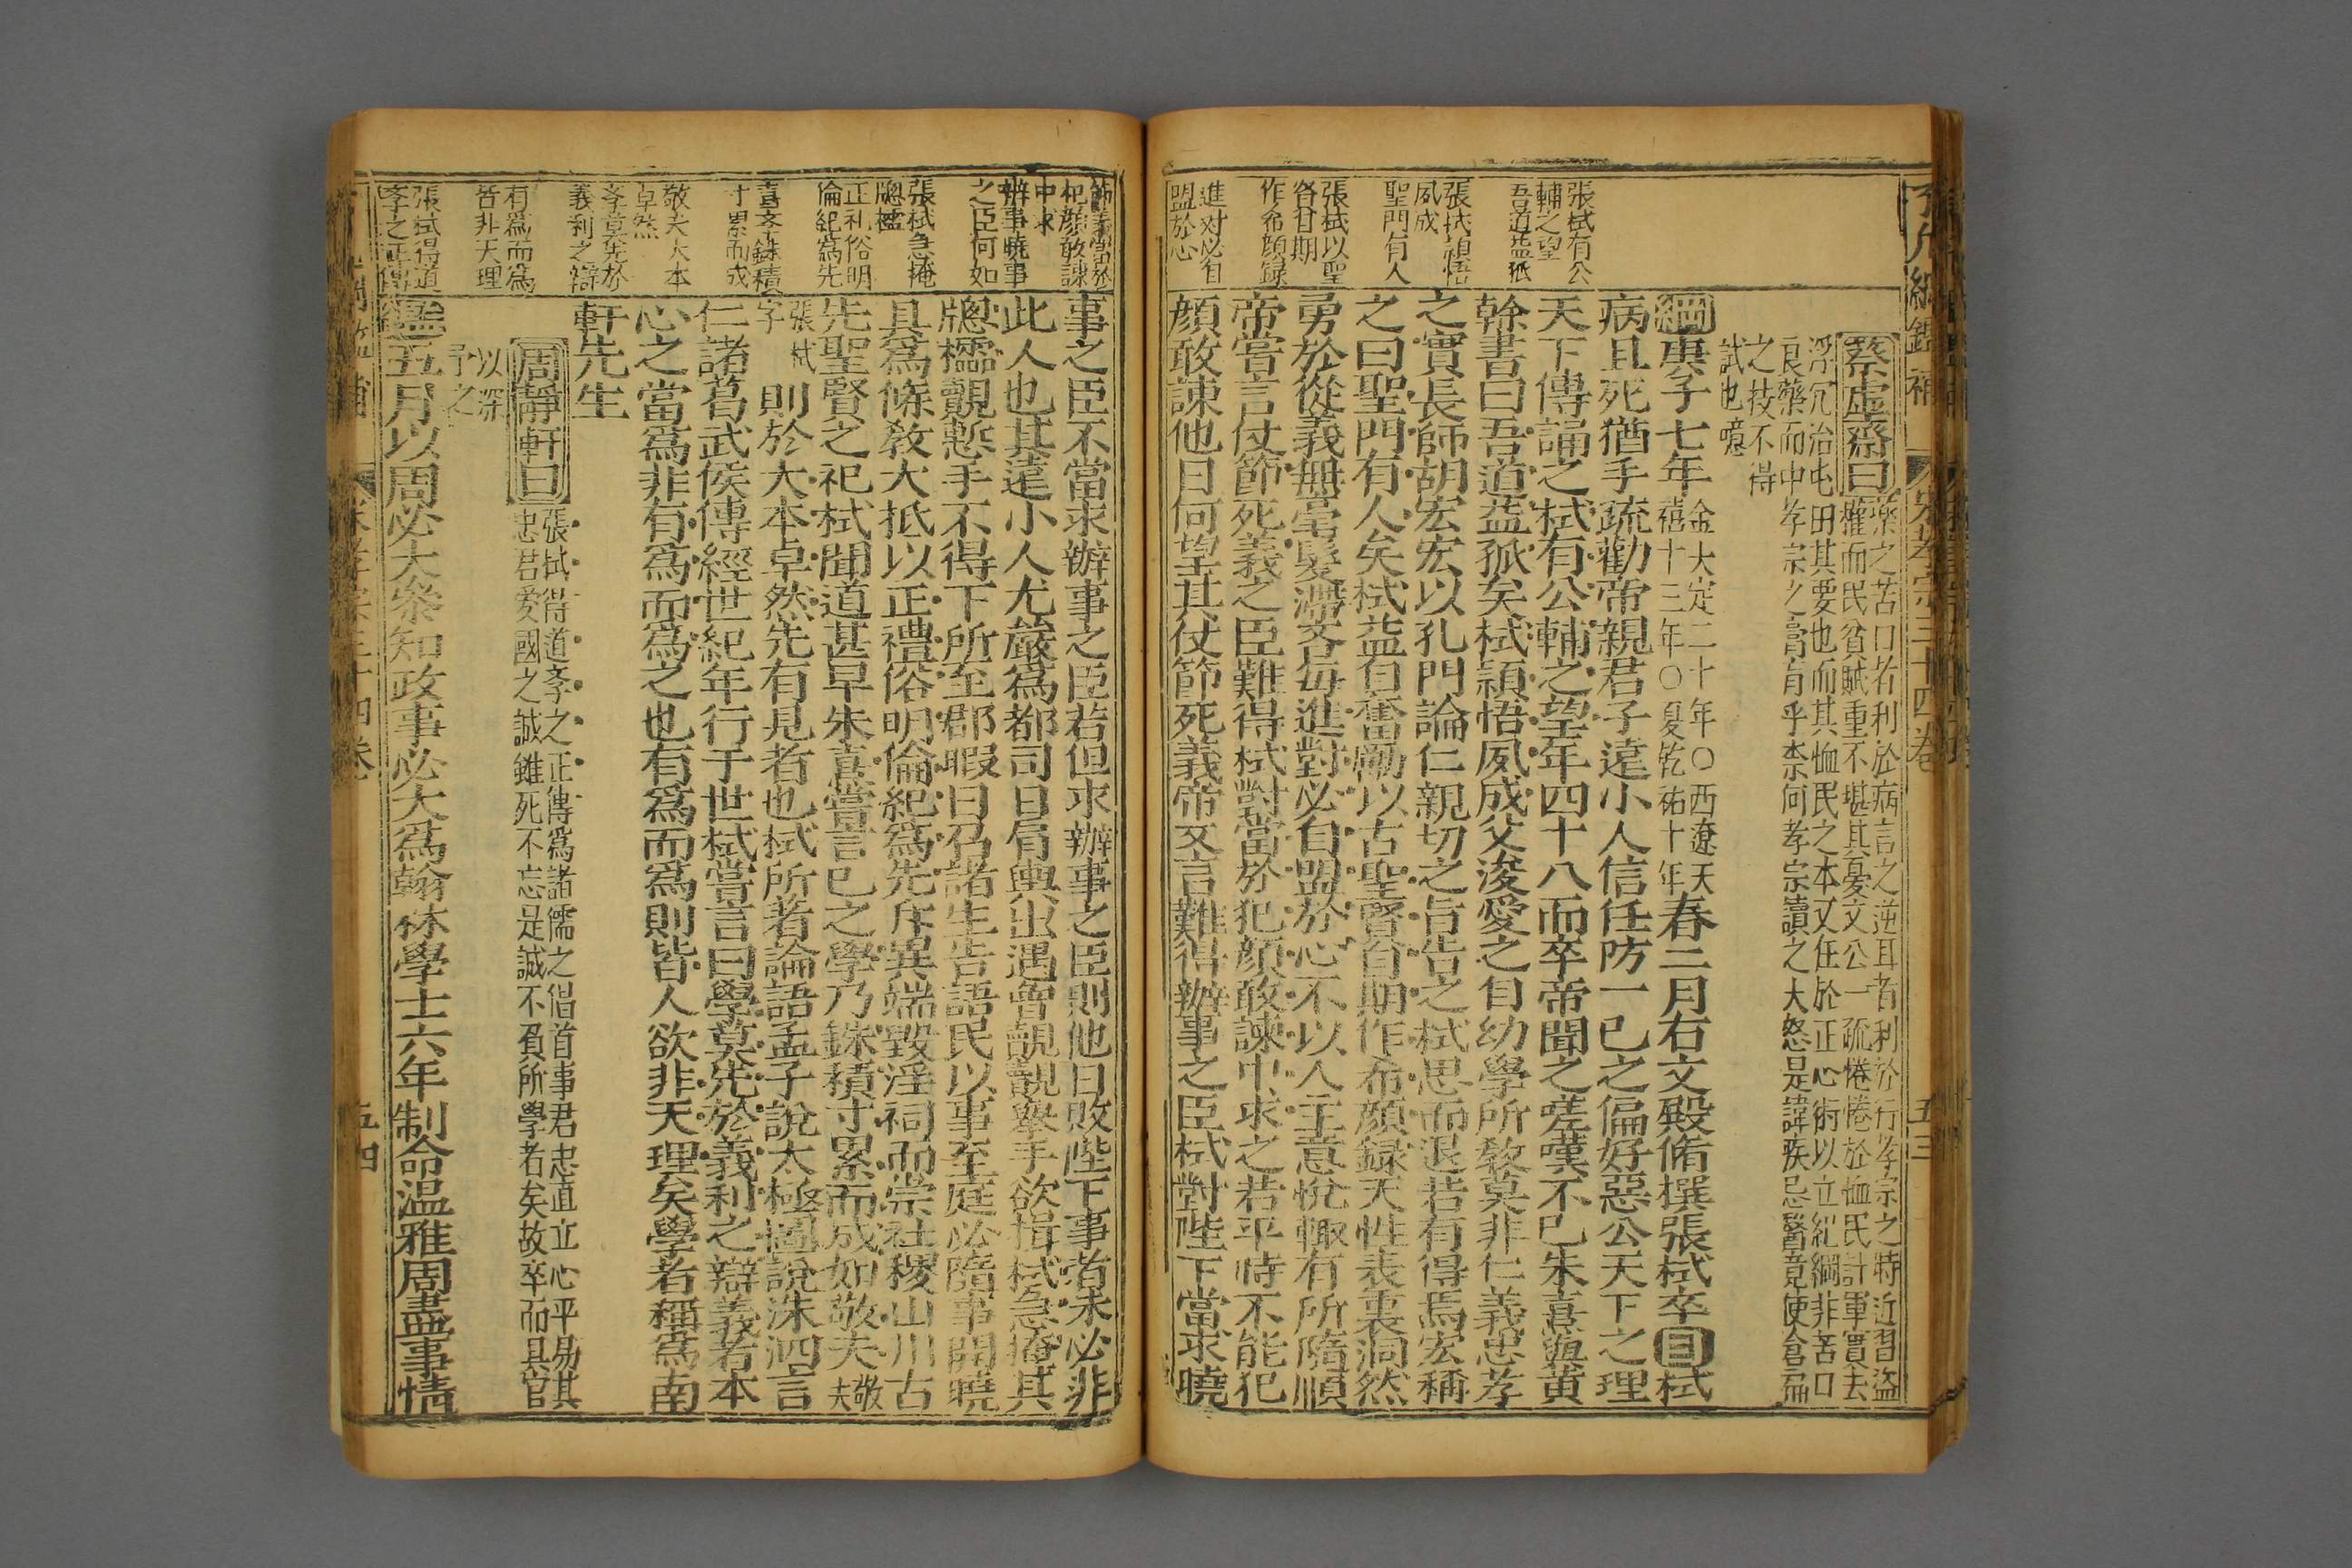 蔡虛齋曰
藥之苦口者利於病言之逆耳者利於行孝宗之時近習盜
權而民貧賦重不堪其憂文公一疏惓惓於恤民計軍實去
浮冗治屯田其要也而其恤民之本又在於正心術以立紀綱非苦口
良藥而中孝宗之膏肓乎柰何孝宗讀之大怒是諱疾忌醫竟使倉扁
之技不得
試也噫
綱庚子七年
金大定二十年〇西遼天
禧十三年〇夏乾祐十年
春二月右文殿脩撰張栻卒目栻
病且死猶手疏勸帝親君子遠小人信任防一已之偏好惡公天下之理
天下傳誦之栻有公輔之望年四十八而卒帝聞之嗟嘆不已朱熹與黃
榦書曰吾道益孤矣栻頴悟夙成父浚愛之自幼學所敎莫非仁義忠孝
之實長師胡宏宏以孔門論仁親切之旨告之栻思而退若有得焉宏稱
之曰聖門有人矣栻益自奮勵以古聖賢自期作希顔録天性表裏洞然
勇於從義無毫髮滯吝每進對必自盟於心不以人主意悅輙有所隨順
帝嘗言仗節死義之臣難得栻對當於犯顔敢諫中求之若平時不能犯
顔敢諫他日何望其仗節死義帝又言難得辦事之臣栻對陛下當求曉
張栻有公
輔之望
吾道益孤
張栻頴悟
夙成
聖門有人
張栻以聖
賢自期
作希顔録
進対必自
盟於心
宋孝宗三十四卷
五三
事之臣不當求辦事之臣若但求辦事之臣則他日敗陛下事者未必非
此人也其遠小人尤嚴爲都司日肩輿出遇曾覿覿舉手欲揖栻急掩其
牕櫺覿慙手不得下所至郡暇日召諸生告語民以事至庭必隨事開曉
具爲條敎大抵以正禮俗明倫紀爲先斥異端毀淫祠而崇社稷山川古
先聖賢之祀栻聞道甚早朱熹嘗言已之學乃銖積寸累而成如敬夫
敬夫
張栻
字
則於大本卓然先有見者也栻所著論語孟子說太極圖說洙泗言
仁諸葛武侯傳經世紀年行于世栻嘗言曰學莫先於義利之辯義者本
心之當爲非有爲而爲之也有爲而爲則皆人欲非天理矣學者稱爲南
軒先生
周靜軒曰
張栻得道斈之正傳爲諸儒之倡首事君忠直立心平易其
忠君愛國之誠雖死不忘是誠不負所學者矣故卒而具官
以深
予之
鑑五月以周必大叅知政事必大爲翰林學士六年制命温雅周盡事情
節義當於
犯顔敢諫
中求
辦事曉事
之臣何如
張栻急掩
牕櫺
正礼俗明
倫紀爲先
熹斈銖積
寸累而成
敬夫大本
卓然
斈莫先於
義利之辯
有爲而爲
皆非天理
張栻得道
斈之正傳
五四